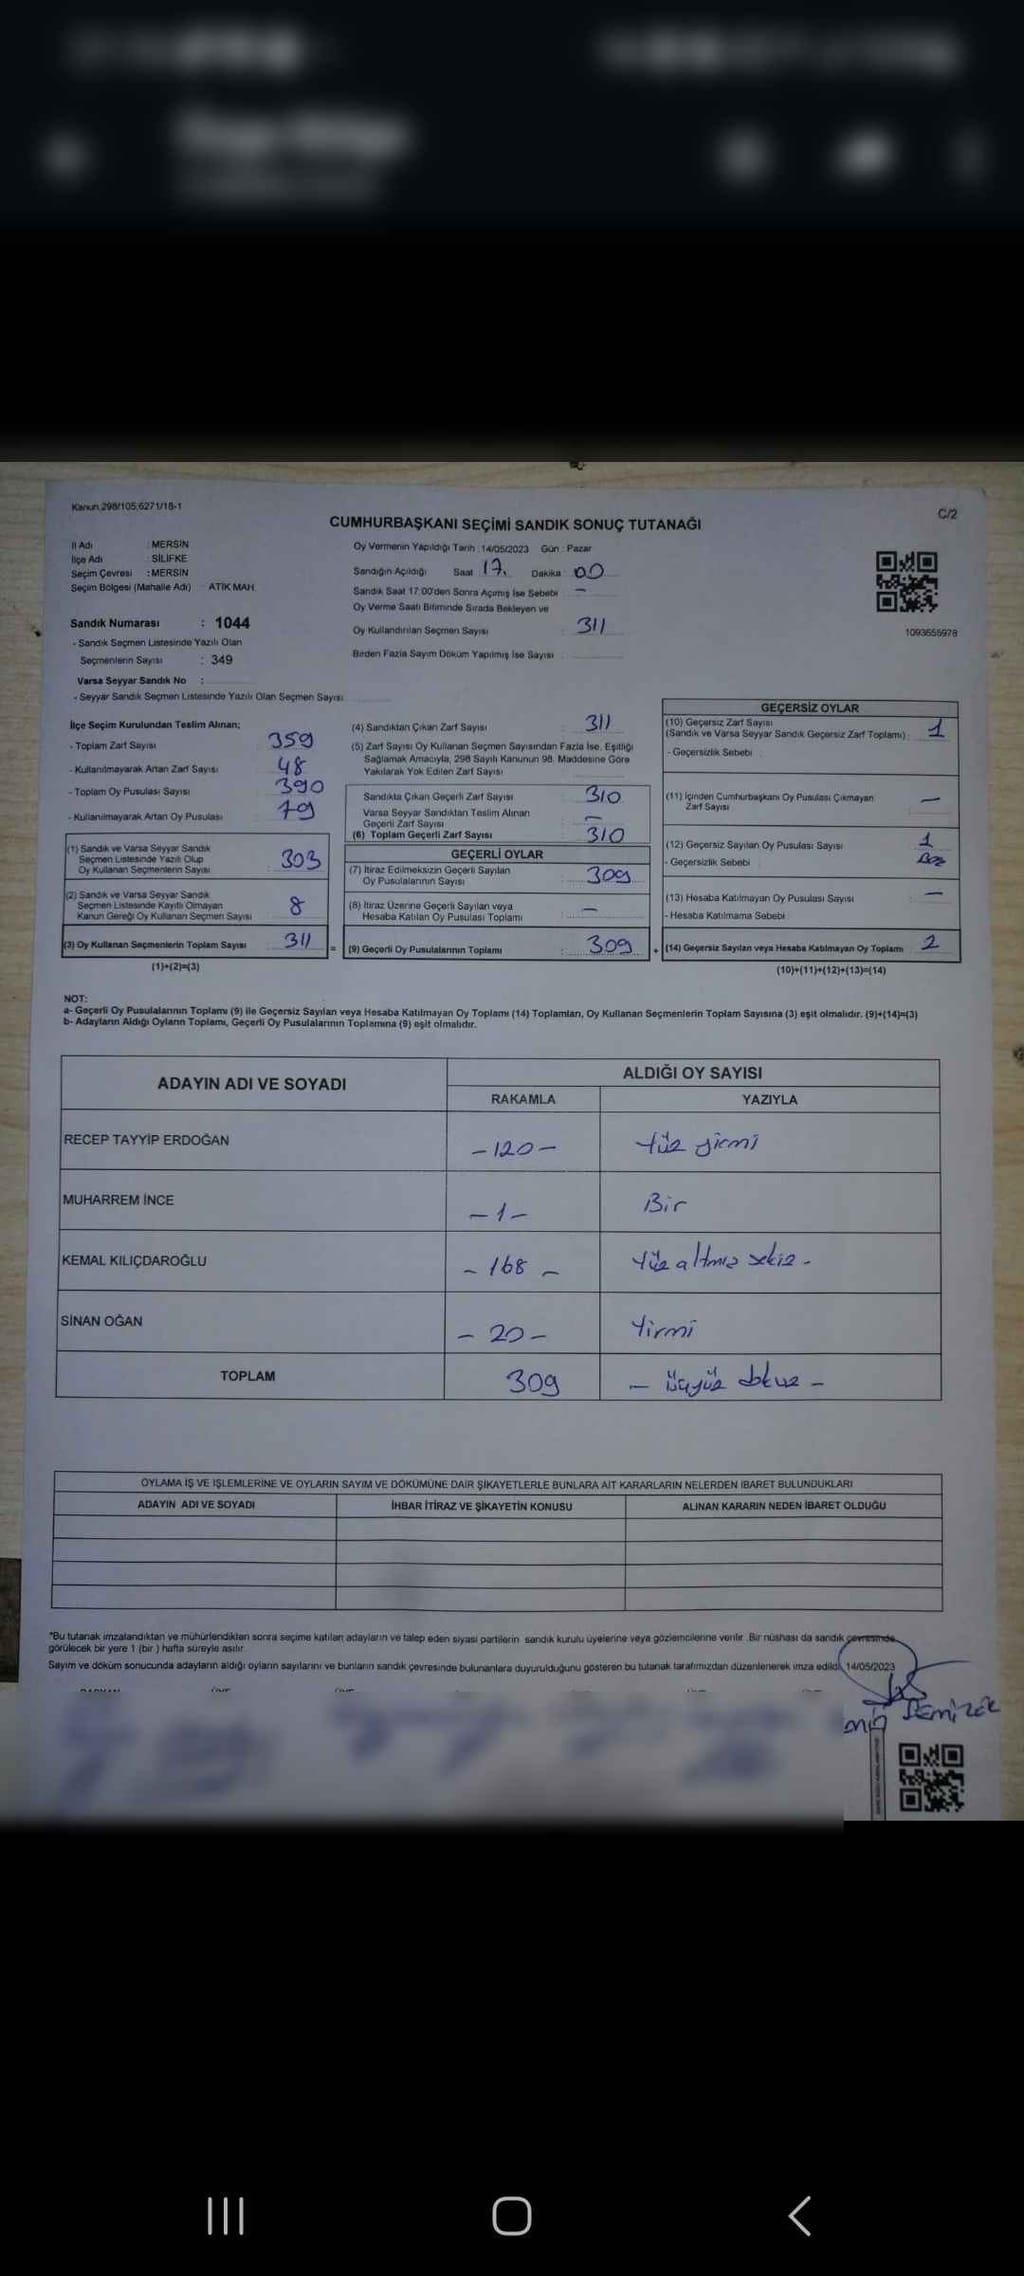 Kanun 298/105;6271/18-1
C/2
CUMHURBAŞKANI SEÇİMİ SANDIK SONUÇ TUTANAĞI
İl Adı : MERSİN
İlçe Adı : SİLİFKE
Seçim Çevresi : MERSİN
Seçim Bölgesi (Mahalle Adı) : ATİK MAH.
Oy Vermenin Yapıldığı Tarih : 14/05/2023 Gün : Pazar
Sandığın Açıldığı Saat 17. Dakika : 00
Sandık Saat 17:00'den Sonra Açımış İse Sebebi : -
Oy Verme Saati Bitiminde Sırada Bekleyen ve
Oy Kullandırılan Seçmen Sayısı : 311
Birden Fazla Sayım Döküm Yapılmış İse Sayısı :
1093655978
Sandık Numarası : 1044
- Sandık Seçmen Listesinde Yazılı Olan
Seçmenlerin Sayısı : 349
Varsa Seyyar Sandık No :
- Seyyar Sandık Seçmen Listesinde Yazılı Olan Seçmen Sayısı
İlçe Seçim Kurulundan Teslim Alınan;
- Toplam Zarf Sayısı 359
- Kullanılmayarak Artan Zarf Sayısı 48
- Toplam Oy Pusulası Sayısı 390
- Kullanılmayarak Artan Oy Pusulası 79
(1) Sandık ve Varsa Seyyar Sandık
Seçmen Listesinde Yazılı Olup
Oy Kullanan Seçmenlerin Sayısı : 303
(2) Sandık ve Varsa Seyyar Sandık
Seçmen Listesinde Kayıtlı Olmayan
Kanun Gereği Oy Kullanan Seçmen Sayısı 8
(3) Oy Kullanan Seçmenlerin Toplam Sayısı 311 =
(1)+(2)=(3)
(4) Sandıktan Çıkan Zarf Sayısı : 311
(5) Zarf Sayısı Oy Kullanan Seçmen Sayısından Fazla İse, Eşitliği
Sağlamak Amacıyla, 298 Sayılı Kanunun 98. Maddesine Göre
Yakılarak Yok Edilen Zarf Sayısı :
Sandıkta Çıkan Geçerli Zarf Sayısı : 310
Varsa Seyyar Sandıktan Teslim Alınan
Geçerli Zarf Sayısı : -
(6) Toplam Geçerli Zarf Sayısı : 310
GEÇERLİ OYLAR
(7) İtiraz Edilmeksizin Geçerli Sayılan
Oy Pusulalarının Sayısı : 309
(8) İtiraz Üzerine Geçerli Sayılan veya
Hesaba Katılan Oy Pusulası Toplamı : -
(9) Geçerli Oy Pusulalarının Toplamı : 309 +
GEÇERSİZ OYLAR
(10) Geçersiz Zarf Sayısı
(Sandık ve Varsa Seyyar Sandık Geçersiz Zarf Toplamı) : 1
- Geçersizlik Sebebi :
(11) İçinden Cumhurbaşkanı Oy Pusulası Çıkmayan
Zarf Sayısı : -
(12) Geçersiz Sayılan Oy Pusulası Sayısı : 1
- Geçersizlik Sebebi :
(13) Hesaba Katılmayan Oy Pusulası Sayısı : -
- Hesaba Katılmama Sebebi
(14) Geçersiz Sayılan veya Hesaba Katılmayan Oy Toplamı : 2
(10)+(11)+(12)+(13)=(14)
NOT:
a- Geçerli Oy Pusulalarının Toplamı (9) ile Geçersiz Sayılan veya Hesaba Katılmayan Oy Toplamı (14) Toplamları, Oy Kullanan Seçmenlerin Toplam Sayısına (3) eşit olmalıdır. (9)+(14)=(3)
b- Adayların Aldığı Oyların Toplamı, Geçerli Oy Pusulalarının Toplamına (9) eşit olmalıdır.
ADAYIN ADI VE SOYADI ALDIĞI OY SAYISI
RAKAMLA YAZIYLA
RECEP TAYYİP ERDOĞAN -120- Yüz yirmi
MUHARREM İNCE -1- Bir
KEMAL KILIÇDAROĞLU - 168 - Yüz altmız sekiz -
SİNAN OĞAN - 20 - Yirmi
TOPLAM 309 - üçyüz dokuz -
OYLAMA İŞ VE İŞLEMLERİNE VE OYLARIN SAYIM VE DÖKÜMÜNE DAİR ŞİKAYETLERLE BUNLARA AİT KARARLARIN NELERDEN İBARET BULUNDUKLARI
ADAYIN ADI VE SOYADI İHBAR İTİRAZ VE ŞİKAYETİN KONUSU ALINAN KARARIN NEDEN İBARET OLDUĞU
*Bu tutanak imzalandıktan ve mühürlendikten sonra seçime katılan adayların ve talep eden siyasi partilerin sandık kurulu üyelerine veya gözlemcilerine verilir. Bir nüshası da sandık çevresinde
görülecek bir yere 1 (bir ) hafta süreyle asılır.
Sayım ve döküm sonucunda adayların aldığı oyların sayılarını ve bunların sandık çevresinde bulunanlara duyurulduğunu gösteren bu tutanak tarafımızdan düzenlenerek imza edildi. 14/05/2023